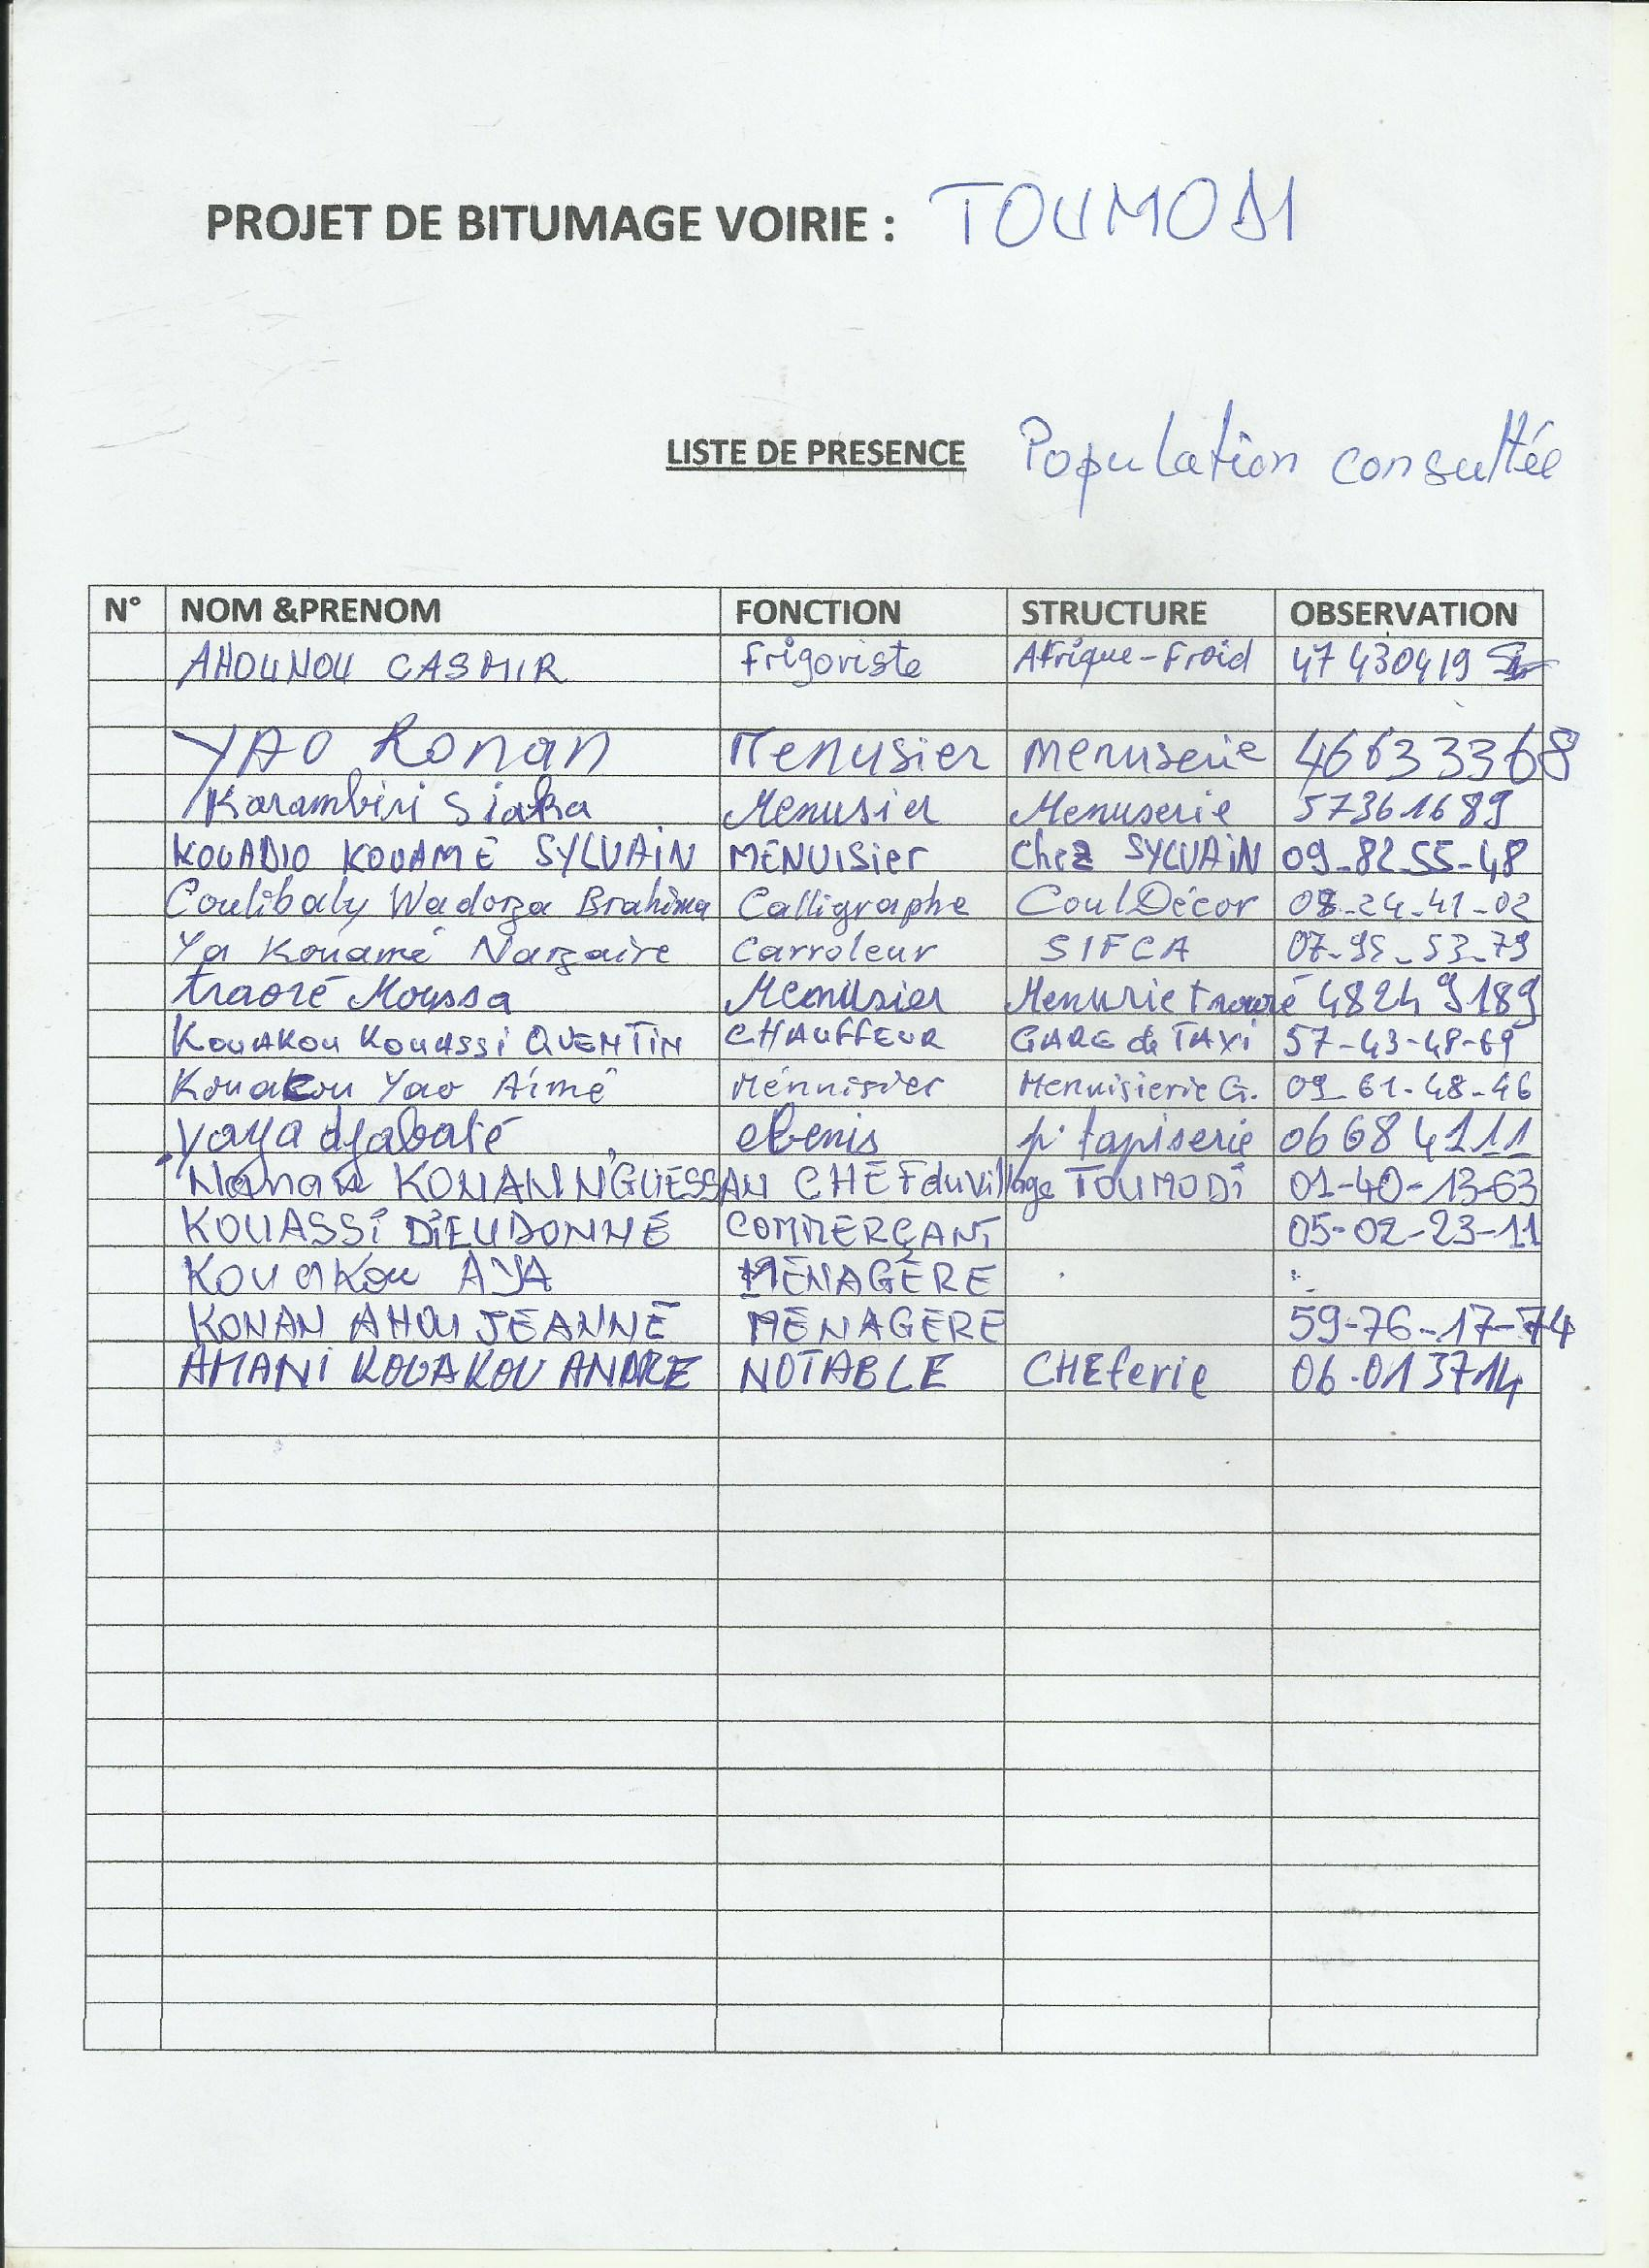 PROJET DE BITUMAGE VOIRIE : TOUMODI
LISTE DE PRESENCE Population consultée
N° NOM &PRENOM FONCTION STRUCTURE OBSERVATION
AHOUNOU CASMIR frigoriste Afrique-Froid 47 430419
YAO Konan Menusier menuserie 46633368
Karambiri Siaka Menusier Menuserie 57361689
KOUADIO KOUAME SYLVAIN MENUISier Chez SYLVAIN 09-82.55-48
Coulibaly Wadorza Brahima Calligraphe CoulDécor 08-24-41-02
Ya Kouamé Narzaire Carroleur SIFCA 07-95-53-79
traoré Moussa Menusier Menurie traoré 48249189
KOUAKOU KOUASSi QUENTiN CHAUFFEUR GARE de TAXi 57-43-48-69
Kouakou Yao Aimé Ménnisier Menuisierie G. 09-61-48-46
yaya djabaté ebenis p. tapiserie 06684111
Nanan KONAN N'GUESSAN CHEF du village TOUMODi 01-40-13-63
KOUASSi DiEUDONNÉ COMMERÇANT 05-02-23-11
KOUAKou AYA MÉNAGÈRE
KONAN AHOU JEANNE MÉNAGÈRE 59-76-17-74
AMANi KOUAKOU ANDRE NOTABLE CHEferie 06.013714